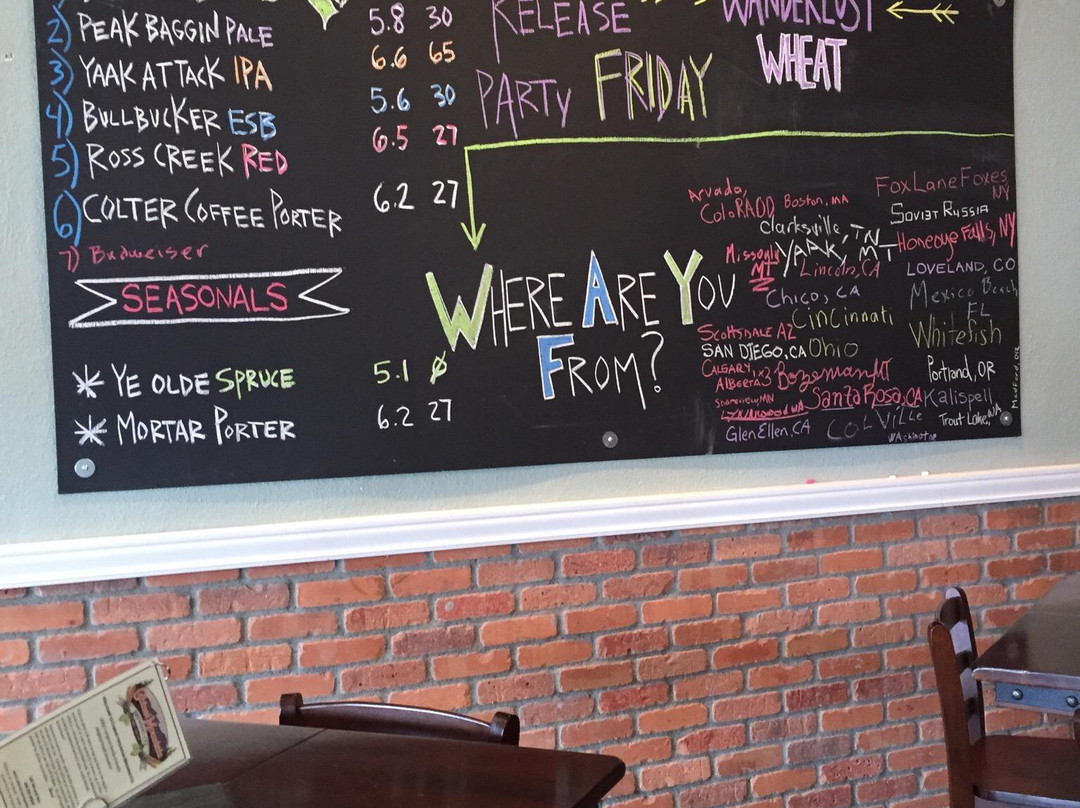 2) PEAK BAGGIN PALE 5.8 30
3) YAAK ATTACK IPA 6.6 65
4) BULLBUCKER ESB 5.6 30
5) ROSS CREEK RED 6.5 27
6) COLTER COFFEE PORTER 6.2 27
7) Budweiser
SEASONALS
* YE OLDE SPRUCE 5.1 Ø
* MORTAR PORTER 6.2 27
RELEASE
PARTY FRIDAY
WANDERLUST
WHEAT
WHERE ARE YOU
FROM?
Arvada,
ColoRADO
Boston, MA
Clarksville, TN
FoxLane Foxes
NY
SOVIET RUSSIA
Missoula
MT
YAAK, MT
Honeoye Falls, NY
Lincoln, CA
LOVELAND, CO
Chico, CA
Mexico Beach
FL
Cincinnati
Ohio
Whitefish
SCOTTSDALE AZ
SAN DIEGO, CA
CALGARY
ALBERTA
x3
Bozeman MT
Portland, OR
Santa Rosa, CA
Kalispell
Glen Ellen, CA
COLVILLE
WAshington
Trout Lake, WA
Medford, OR